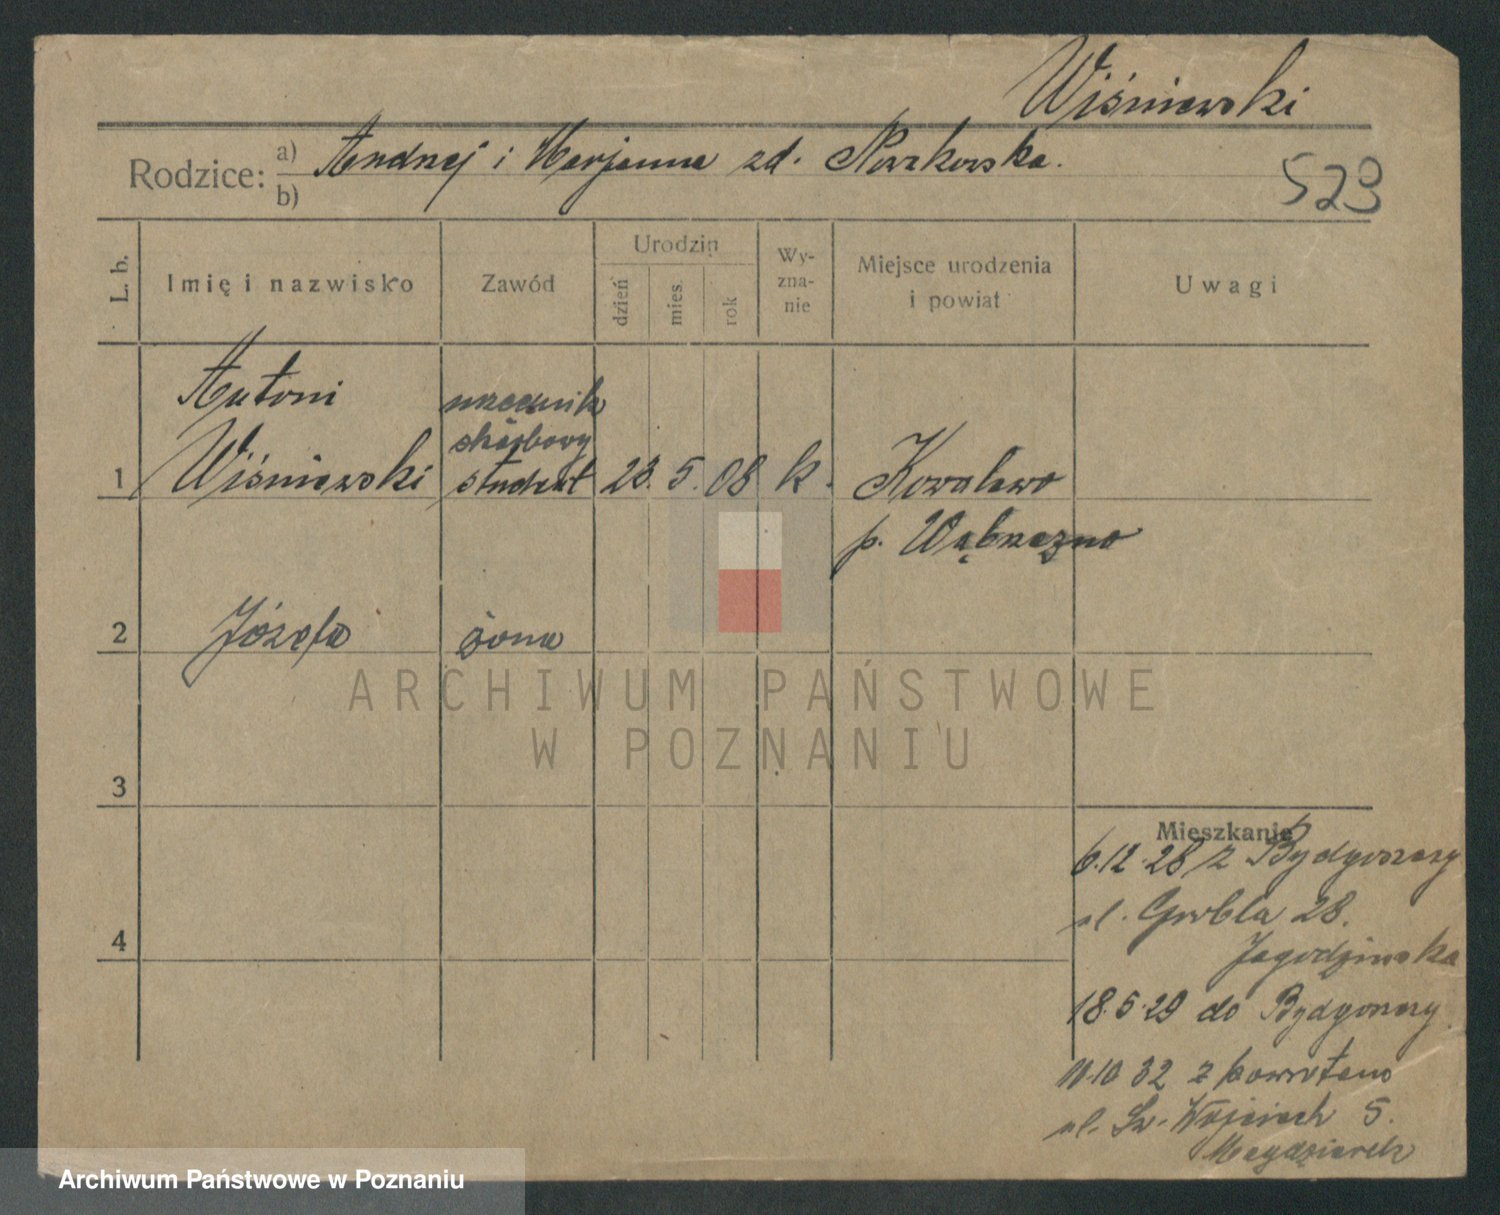 Wiśniewski
Rodzice: a) Andrzej i Marjanna zd.
b)
523
L. b.
Imię i nazwisko
Zawód
Urodzin
dzień
mies.
rok
Wy-
zna-
nie
Miejsce urodzenia
i powiat
Uwagi
Antoni
urzędnik
skarbowy
1 Wiśniewski student 23. 5. 08 k. Kowalewo
p. Wąbrzeźno
2 Józefa żona
ARCHIWUM PAŃSTWOWE
W POZNANIU
3
Mieszkanie
6.12.28 z Bydgoszczy
ul. Grobla 28.
Jagodzińska
4
18.5.29 do Bydgoszczy
10.10 32 z powrotem
ul. Św. Wojciech 5.
Archiwum Państwowe w Poznaniu